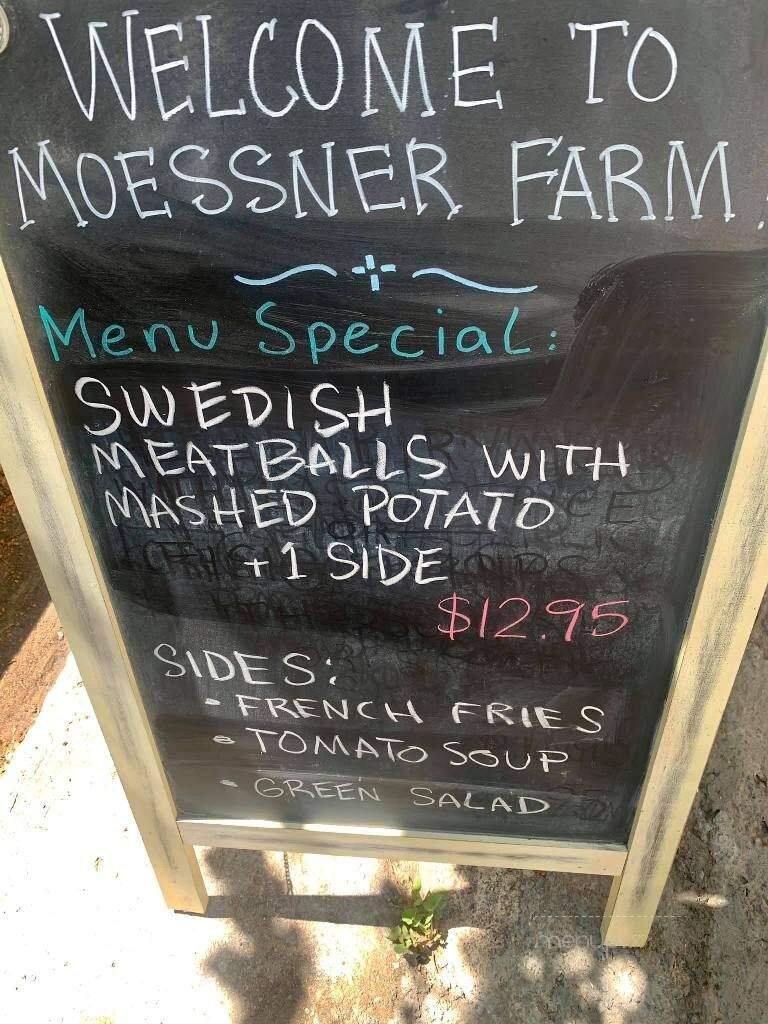 WELCOME TO
MOESSNER FARM
Menu Special:
SWEDISH
MEATBALLS WITH
MASHED POTATO
+ 1 SIDE
$12.95
SIDES:
• FRENCH FRIES
• TOMATO SOUP
• GREEN SALAD